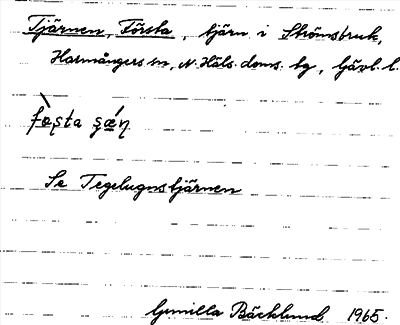 Tjärnen, Första, tjärn i Strömsbruk,
Harmångers sn, N. Häls. doms. tg, Gävl. l.
fœ̀ṣta ṣǽṇ
Se Tegelugnstjärnen
Gunilla Bäcklund 1965.